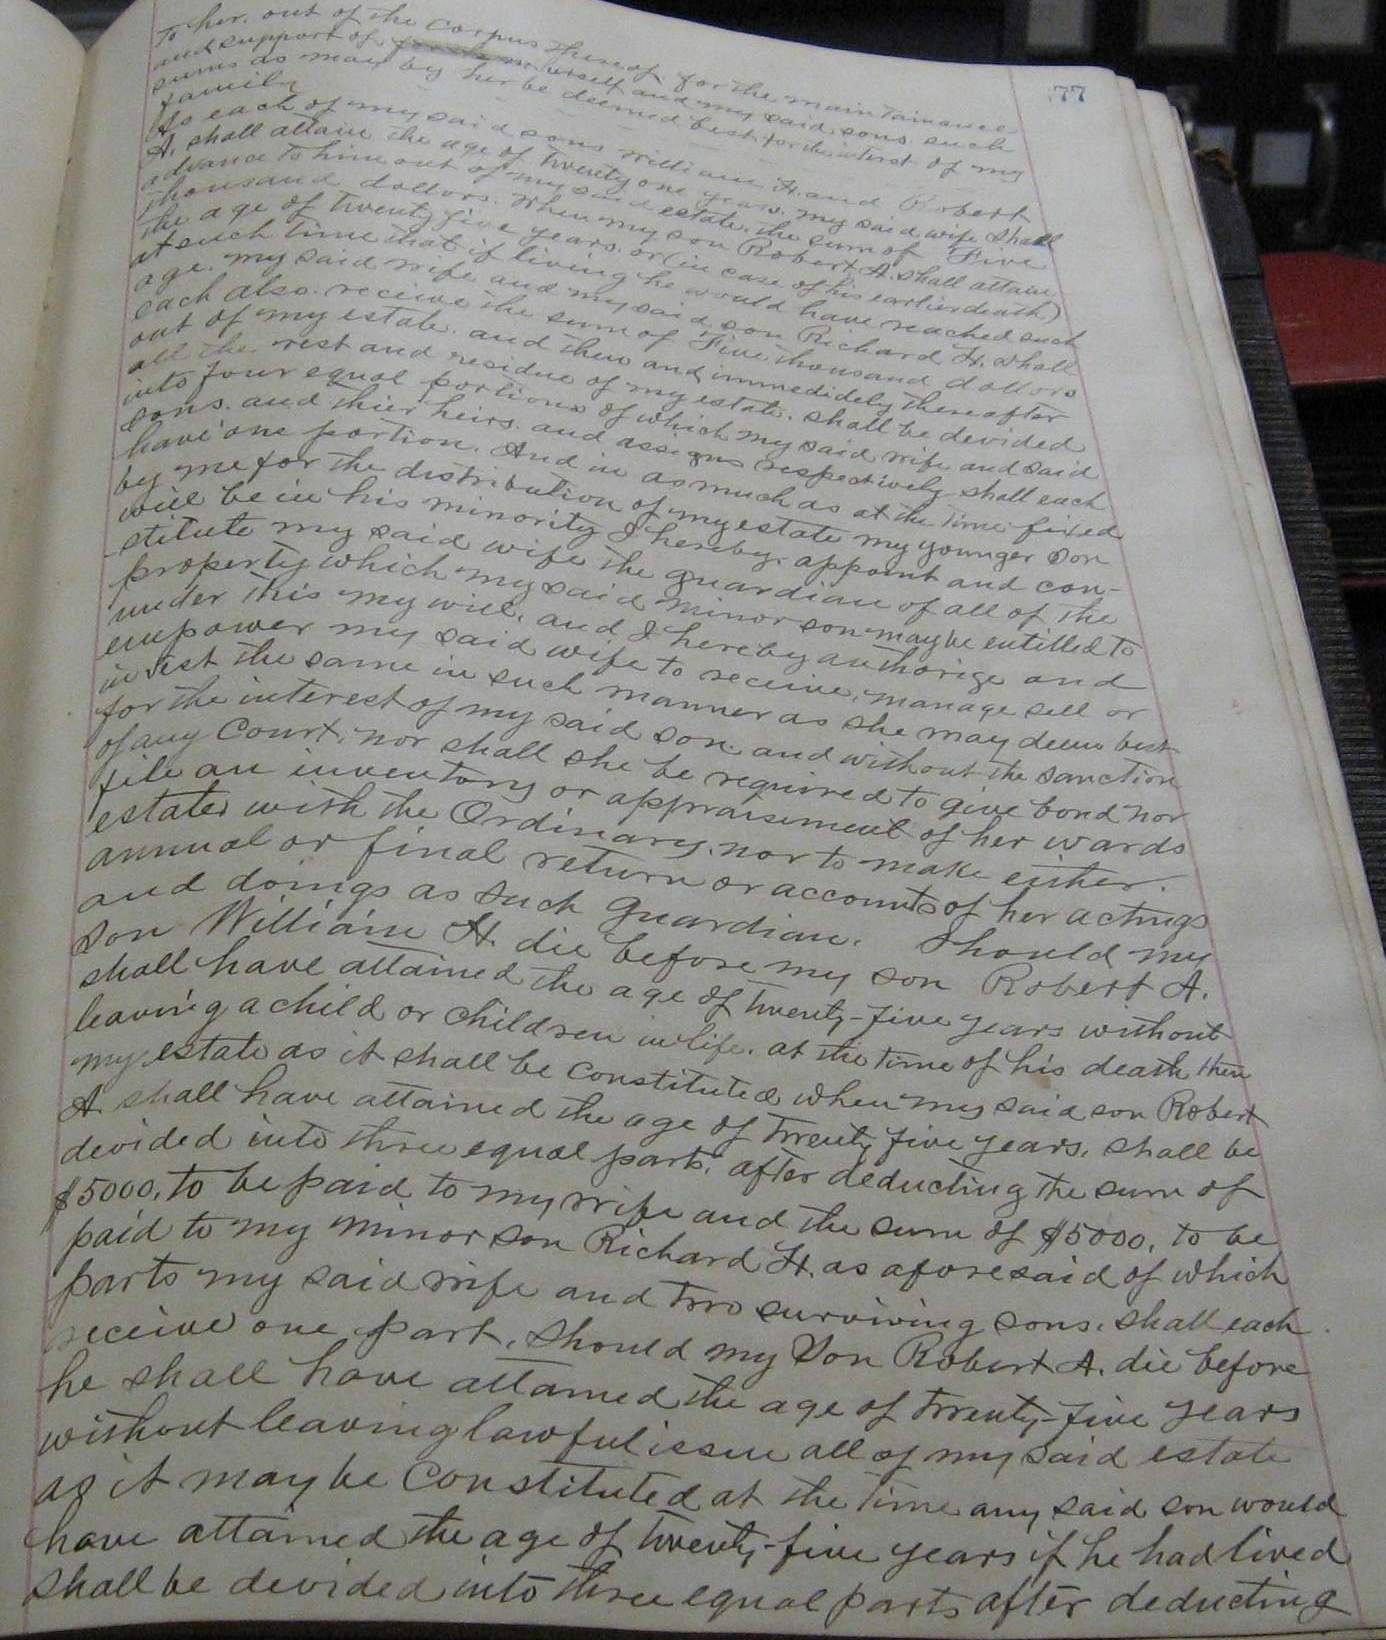 77
To her. out of the Corpus thereof. for the maintainance
and support of herself and my said sons. such
sums as may by her be deemed best. for the interst of my
family
As each of my said sons William H. and Robert
A. shall attain the age of twenty one years. my said wife shall
advance to him out of my said estate. the sum of Five
thousand dollars. When my son Robert A. shall attain
the age of twenty five years. or (in case of his earlier death)
at such time that if living he would have reached such
age. my said wife and my said son Richard H. shall
each also. receive the sum of Five thousand dollars
out of my estate. and then and immedidely thereafter
all the rest and residue of my estate. shall be devided
into four equal portions of which my said wife and said
sons. and thier heirs. and assigns respectively shall each
have one portion. And in as much as at the time fixed
by me for the distribution of my estate my younger son
will be in his minority I hereby. appoint and con-
-stitute my said wife the guardian of all of the
property which my said minor son may be entitled to
under this my will. and I hereby authorize and
empower my said wife to receive, manage sell or
invist the same in such manner as she may deem best
for the interest of my said son. and without the sanction
of any Court, nor shall she be required to give bond nor
file an inventory or appraisement of her wards
estate with the Ordinary. nor to make either.
annual or final return or accounts of her actings
and doings as such guardian. Should my
son William H. die before my son Robert A.
shall have attained the age of twenty-five years without
leaving a child or children in life. at the time of his death then
my estate as it shall be constituted when my said son Robert
A shall have attained the age of twenty five years. shall be
devided into three equal parts. after deducting the sum of
$5000. to be paid to my wife and the sum of $5000. to be
paid to my minor son Richard H. as aforesaid of which
parts my said wife and two surviving sons. shall each
receive one part. Should my Son Robert A. die before
he shall have attained the age of twenty-five years
without leaving lawful issue all of my said estate
as it may be constituted at the time any said son would
have attained the age of twenty-five years if he had lived
shall be devided into three equal parts after deducting